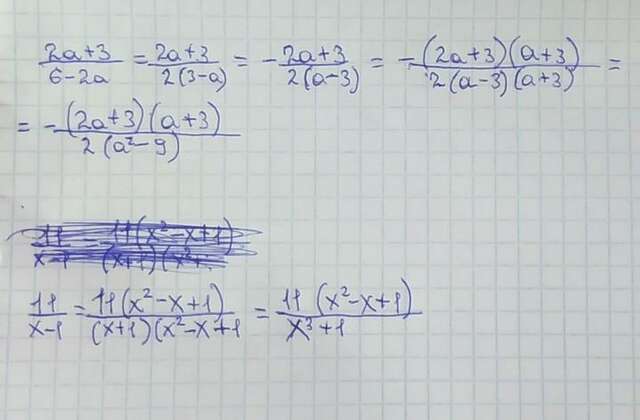 (2a+3)/(6-2a) = (2a+3)/(2(3-a)) = -(2a+3)/(2(a-3)) = -((2a+3)(a+3))/(2(a-3)(a+3)) =
= -((2a+3)(a+3))/(2(a²-9))
11/(x-1) = (11(x²-x+1))/((x+1)(x²-x+1 = (11(x²-x+1))/(x³+1)